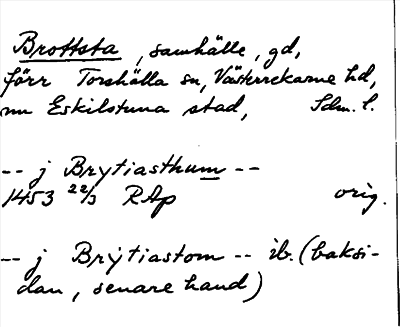 Brottsta, samhälle, gd,
förr Torshälla sn, Västerrekarne hd,
nu Eskilstuna stad, Sdm. l.
-- j Brytiasthum --
1453 22/3 RAp orig.
-- j Brÿtiastom -- ib. (baksi-
dan, senare hand)